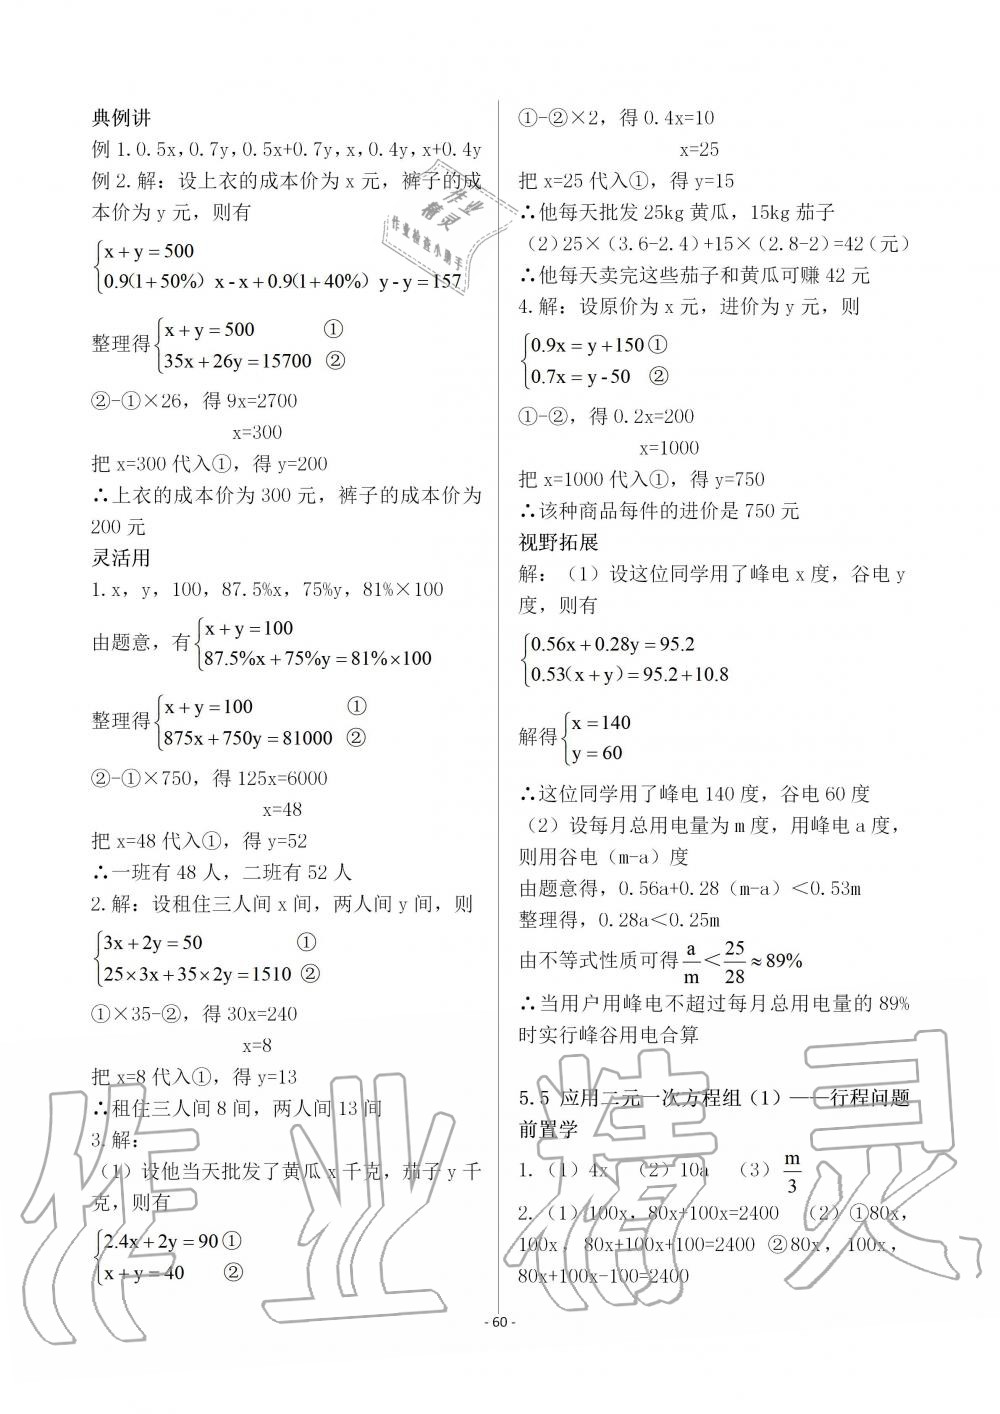 典例讲
例 1.0.5x，0.7y，0.5x+0.7y，x，0.4y，x+0.4y
例 2.解：设上衣的成本价为 x 元，裤子的成
本价为 y 元，则有
x + y = 500
0.9(1+50%) x - x + 0.9(1+40%) y - y = 157
整理得
x + y = 500 ①
35x + 26y = 15700 ②
②-①×26，得 9x=2700
x=300
把 x=300 代入①，得 y=200
∴上衣的成本价为 300 元，裤子的成本价为
200 元
灵活用
1.x，y，100，87.5%x，75%y，81%×100
由题意，有
x + y = 100
87.5%x + 75%y = 81%×100
整理得
x + y = 100 ①
875x + 750y = 81000 ②
②-①×750，得 125x=6000
x=48
把 x=48 代入①，得 y=52
∴一班有 48 人，二班有 52 人
2.解：设租住三人间 x 间，两人间 y 间，则
3x + 2y = 50 ①
25×3x + 35×2y = 1510 ②
①×35-②，得 30x=240
x=8
把 x=8 代入①，得 y=13
∴租住三人间 8 间，两人间 13 间
3.解：
（1）设他当天批发了黄瓜 x 千克，茄子 y 千
克，则有
2.4x + 2y = 90 ①
x + y = 40 ②
①-②×2，得 0.4x=10
x=25
把 x=25 代入①，得 y=15
∴他每天批发 25kg 黄瓜，15kg 茄子
（2）25×（3.6-2.4）+15×（2.8-2）=42（元）
∴他每天卖完这些茄子和黄瓜可赚 42 元
4.解：设原价为 x 元，进价为 y 元，则
0.9x = y + 150 ①
0.7x = y - 50 ②
①-②，得 0.2x=200
x=1000
把 x=1000 代入①，得 y=750
∴该种商品每件的进价是 750 元
视野拓展
解：（1）设这位同学用了峰电 x 度，谷电 y
度，则有
0.56x + 0.28y = 95.2
0.53(x + y) = 95.2 + 10.8
解得
x = 140
y = 60
∴这位同学用了峰电 140 度，谷电 60 度
（2）设每月总用电量为 m 度，用峰电 a 度，
则用谷电（m-a）度
由题意得，0.56a+0.28（m-a）＜0.53m
整理得，0.28a＜0.25m
由不等式性质可得 a/m ＜ 25/28 ≈ 89%
∴当用户用峰电不超过每月总用电量的 89%
时实行峰谷用电合算
5.5 应用二元一次方程组（1）——行程问题
前置学
1.（1）4x （2）10a （3）m/3
2.（1）100x，80x+100x=2400 （2）①80x，
100x，80x+100x+100=2400 ②80x，100x，
80x+100x-100=2400
- 60 -
作业精灵
作业
精灵
作业检查小助手